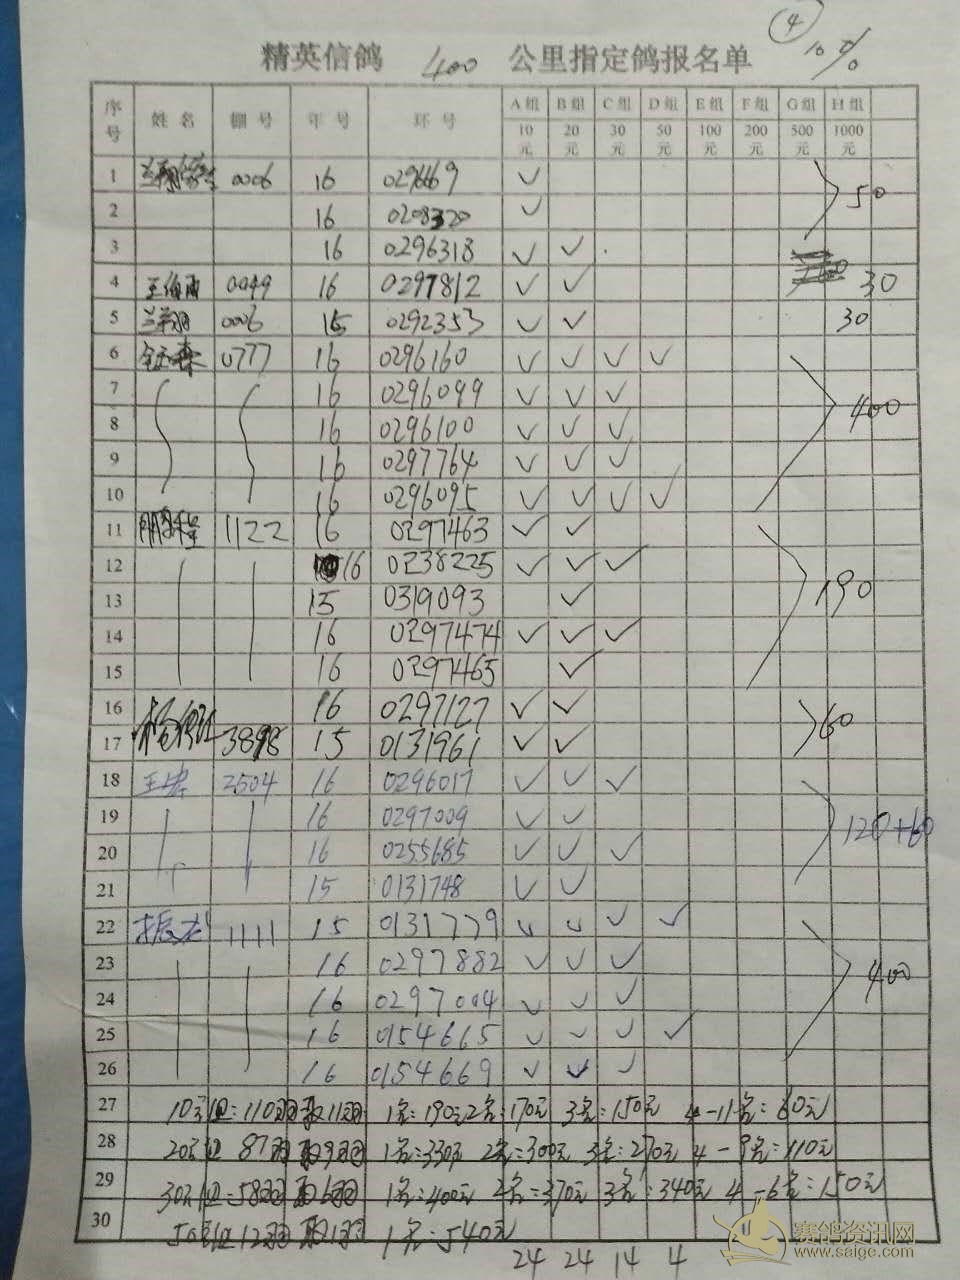 ④
10%
精英信鸽 400 公里指定鸽报名单
序号 姓名 棚号 年号 环号 A组 B组 C组 D组 E组 F组 G组 H组
10元 20元 30元 50元 100元 200元 500元 1000元
1 0006 16 ✓ 50
2 16 ✓
3 16 0296318 ✓ ✓
4 0049 16 0297812 ✓ ✓ 30
5 兰翔 0006 15 0292353 ✓ ✓ 30
6 0777 16 0296160 ✓ ✓ ✓ ✓
7 16 0296099 ✓ ✓ ✓ 400
8 16 0296100 ✓ ✓ ✓
9 16 0297764 ✓ ✓ ✓
10 16 0296095 ✓ ✓ ✓ ✓
11 鹏程 1122 16 0297463 ✓ ✓
12 16 0238225 ✓ ✓ ✓
13 15 0319093 ✓ 190
14 16 0297474 ✓ ✓ ✓
15 16 0297465 ✓
16 16 0297127 ✓ ✓ 60
17 15 0131961 ✓ ✓
18 2504 16 0296017 ✓ ✓ ✓
19 16 0297009 ✓ ✓ 120+60
20 16 0255685 ✓ ✓ ✓
21 15 0131748 ✓ ✓
22 振龙 1111 15 0131779 ✓ ✓ ✓ ✓
23 16 0297882 ✓ ✓ ✓ 400
24 16 0297004 ✓ ✓ ✓
25 16 0154665 ✓ ✓ ✓ ✓
26 16 0154669 ✓ ✓ ✓
27 10元组:110羽取11羽 1名:190元 2名:170元 3名:150元 4-11名:60元
28 20元组 87羽取9羽 1名:330元 2名:300元 3名:270元 4-9名:110元
29 30元组:58羽取6羽 1名:400元 2名:370元 3名:340元 4-6名:150元
30 50元组12羽取1羽 1名:540元
24 24 14 4
赛鸽资讯网
www.saige.com